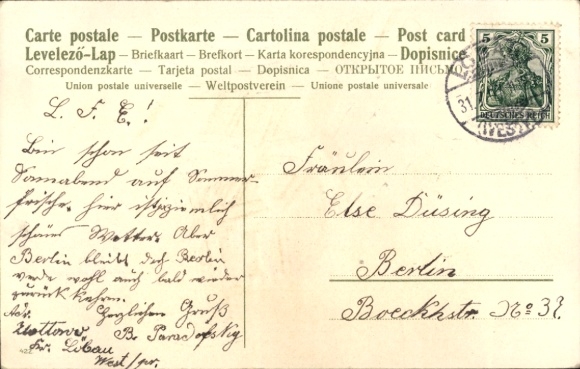 Carte postale — Postkarte — Cartolina postale — Post card
Levelező-Lap — Briefkaart — Brefkort — Karta korespondencyjna — Dopisnice
Correspondenzkarte — Tarjeta postal — Dopisnica — ОТКРЫТОЕ ПИСЬМО
Union postale universelle — Weltpostverein — Unione postale universale
5 5
DEUTSCHES REICH
31
(WESTPR
L. F. E.!
Bin schon seit
Sonnabend auf Sommer-
frische. hier ist ziemlich
schönes Wetter. Aber
Berlin bleibt doch Berlin
werde wohl auch bald wieder
zurück kehren.
Herzlichen Gruß
B.
Adr.
Kr. Löbau
West/pr.
Fräulein
Else Düsing
Berlin
Boeckhstr. No 37.